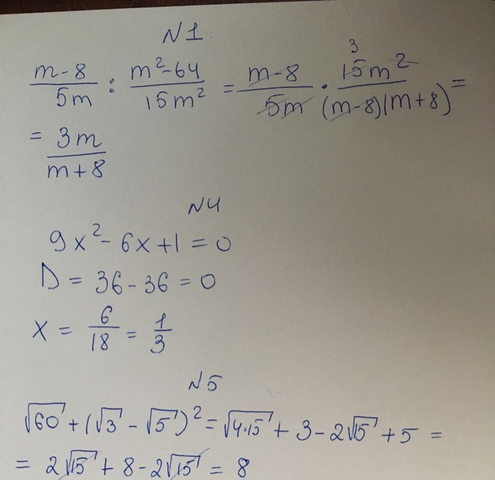 N1.
(m-8)/(5m) : (m²-64)/(15m²) = (m-8)/(5m) · (3 15m²)/((m-8)(m+8)) =
= 3m/(m+8)
N4
9x²-6x+1=0
D = 36-36=0
x = 6/18 = 1/3
N5
√60+(√3-√5)²=√4·15+3-2√15+5 =
= 2√15+8-2√15 = 8